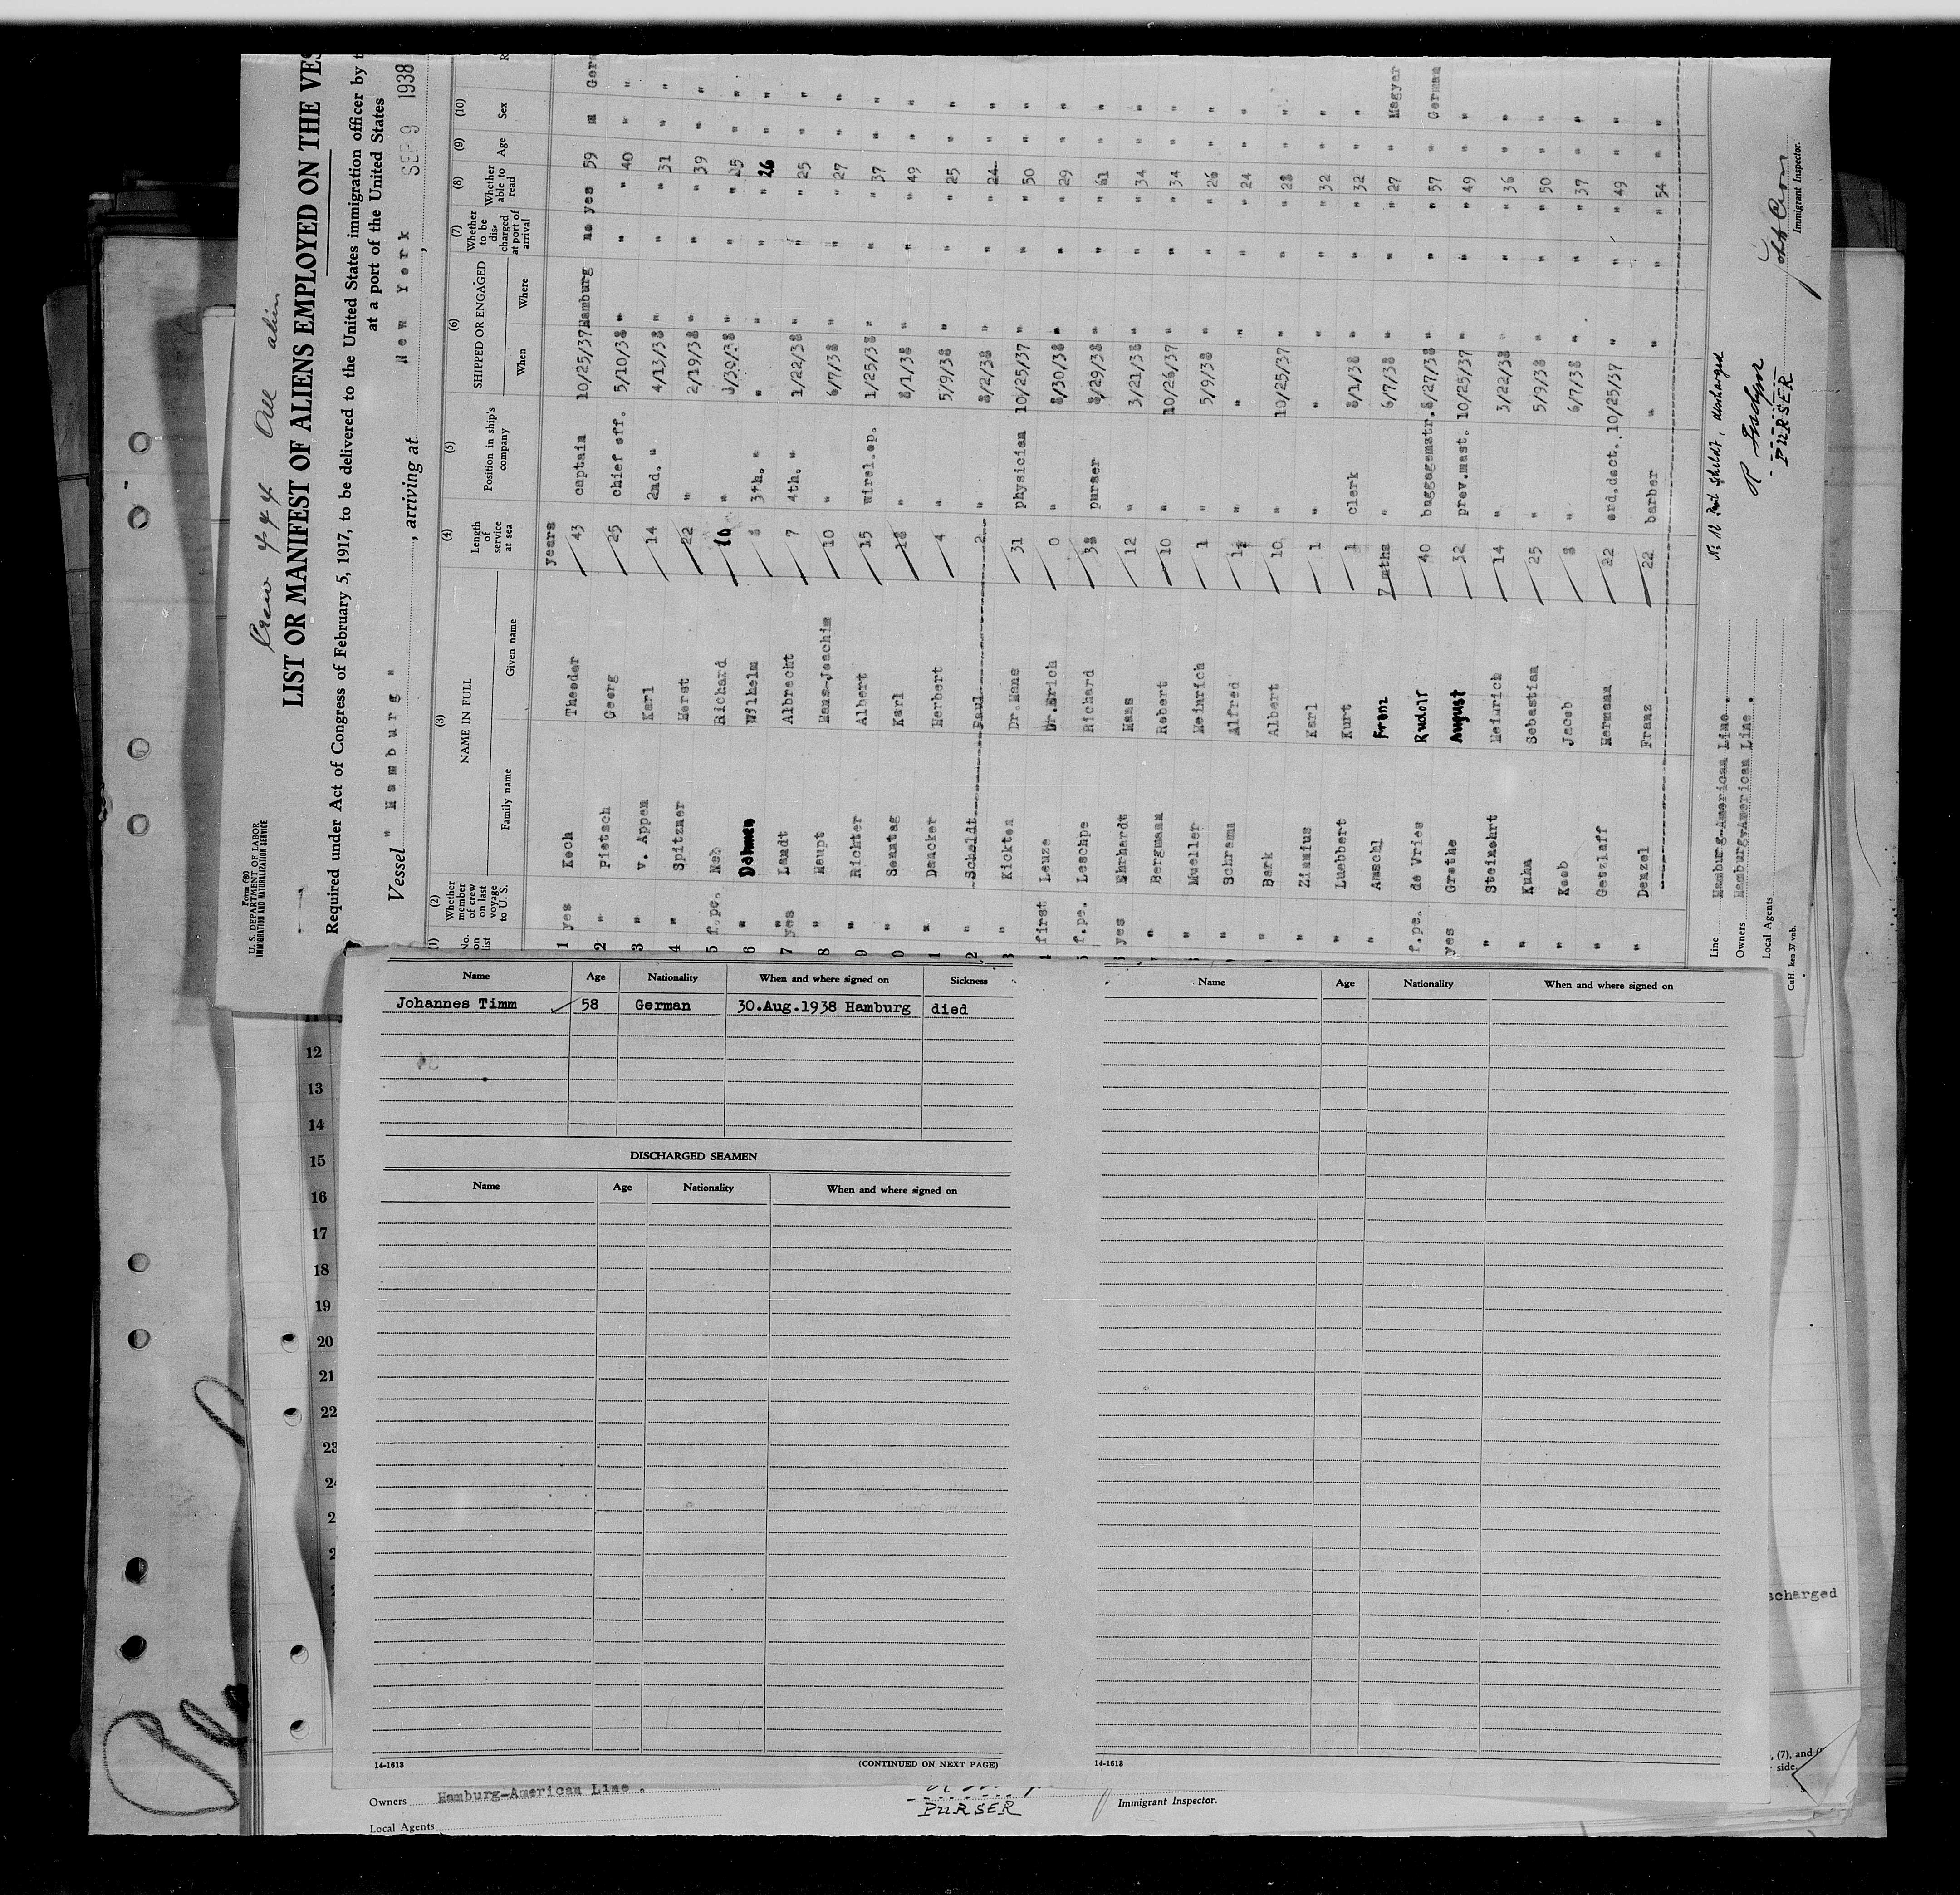 Form 680
U. S. DEPARTMENT OF LABOR
IMMIGRATION AND NATURALIZATION SERVICE
Crew 444 All alien
LIST OR MANIFEST OF ALIENS EMPLOYED ON THE VES
Required under Act of Congress of February 5, 1917, to be delivered to the United States immigration officer by t
at a port of the United States
Vessel " Hamburg " , arriving at New York , SEP 9 1938
(1) (2) (3) (4) (5) (6) (7) (8) (9) (10)
No. on list Whether member of crew on last voyage to U. S. NAME IN FULL Family name Given name Length of service at sea Position in ship's company SHIPPED OR ENGAGED When Where Whether to be dis- charged at port of arrival Whether able to read Age Sex R
years
1 yes Koch Theodor 43 captain 10/25/37 Hamburg no yes 59 m Ger
2 " Pietsch Georg 25 chief off. 5/10/38 " " " 40 " "
3 " v. Appen Karl 14 2nd. " 4/12/38 " " " 31 " "
4 " Spitzner Horst 22 " 2/19/38 " " " 39 " "
5 f.pc. Neb Richard 10 " " " " " "
6 " Dohmen Wilhelm 3th. " " " " " 26 " "
7 " yes Landt Albrecht 7 4th. " 1/22/38 " " " 25 " "
8 " Haupt Hans-Joachim 10 " 6/7/38 " " " 27 " "
9 " Richter Albert 15 wirel.op. 1/25/38 " " " 37 " "
0 " Sonntag Karl 18 " 8/1/38 " " " 49 " "
1 " Dancker Herbert 4 " 5/9/38 " " " 25 " "
2 " Scheldt Paul 2 " 8/2/38 " " " 24 " "
3 " Kickton Dr.Hans 31 physician 10/25/37 " " " 50 " "
4 first Leuze Dr.Erich 0 " 8/30/38 " " " 29 " "
5 f.pc. Leschpe Richard 38 purser 8/29/38 " " " 61 " "
yes Ehrhardt Hans 12 " 3/21/38 " " " 34 " "
" Bergmann Robert 10 " 10/26/37 " " " 34 " "
" Mueller Heinrich 1 " 5/9/38 " " " 26 " "
" Schramm Alfred " " " " " 24 " "
" Bark Albert 10 " 10/25/37 " " " 28 " "
" Zinnius Karl 1 " " " " " 32 " "
" Luebbert Kurt 1 clerk 8/1/38 " " " 32 " "
" Amschl Franz 7 mths " 6/7/38 " " " 27 " Magyar
f.pc. de Vries Rudolf 40 baggagemstr. 8/27/38 " " " 57 " German
yes Grothe August 32 prov.mast. 10/25/37 " " " 49 " "
" Steinohrt Heinrich 14 " 3/22/38 " " " 36 " "
" Kuhn Sebastian 25 " 5/9/38 " " " 50 " "
" Koob Jacob 8 " 6/7/38 " " " 37 " "
" Getzlaff Herman 22 ord.dact. 10/25/37 " " " 49 " "
" Denzel Franz 22 barber " " " " 54 " "
Line Hamburg-American Line .
Owners Hamburg-American Line .
Local Agents
discharged
PURSER
Immigrant Inspector.
Name Age Nationality When and where signed on Sickness
Johannes Timm 58 German 30.Aug.1938 Hamburg died
DISCHARGED SEAMEN
Name Age Nationality When and where signed on
14-1613 (CONTINUED ON NEXT PAGE)
Name Age Nationality When and where signed on
14-1613
11
12
13
14
15
16
17
18
19
20
21
22
23
scharged
, (7), and
side.
Owners Hamburg-American Line .
PURSER
Immigrant Inspector.
Local Agents